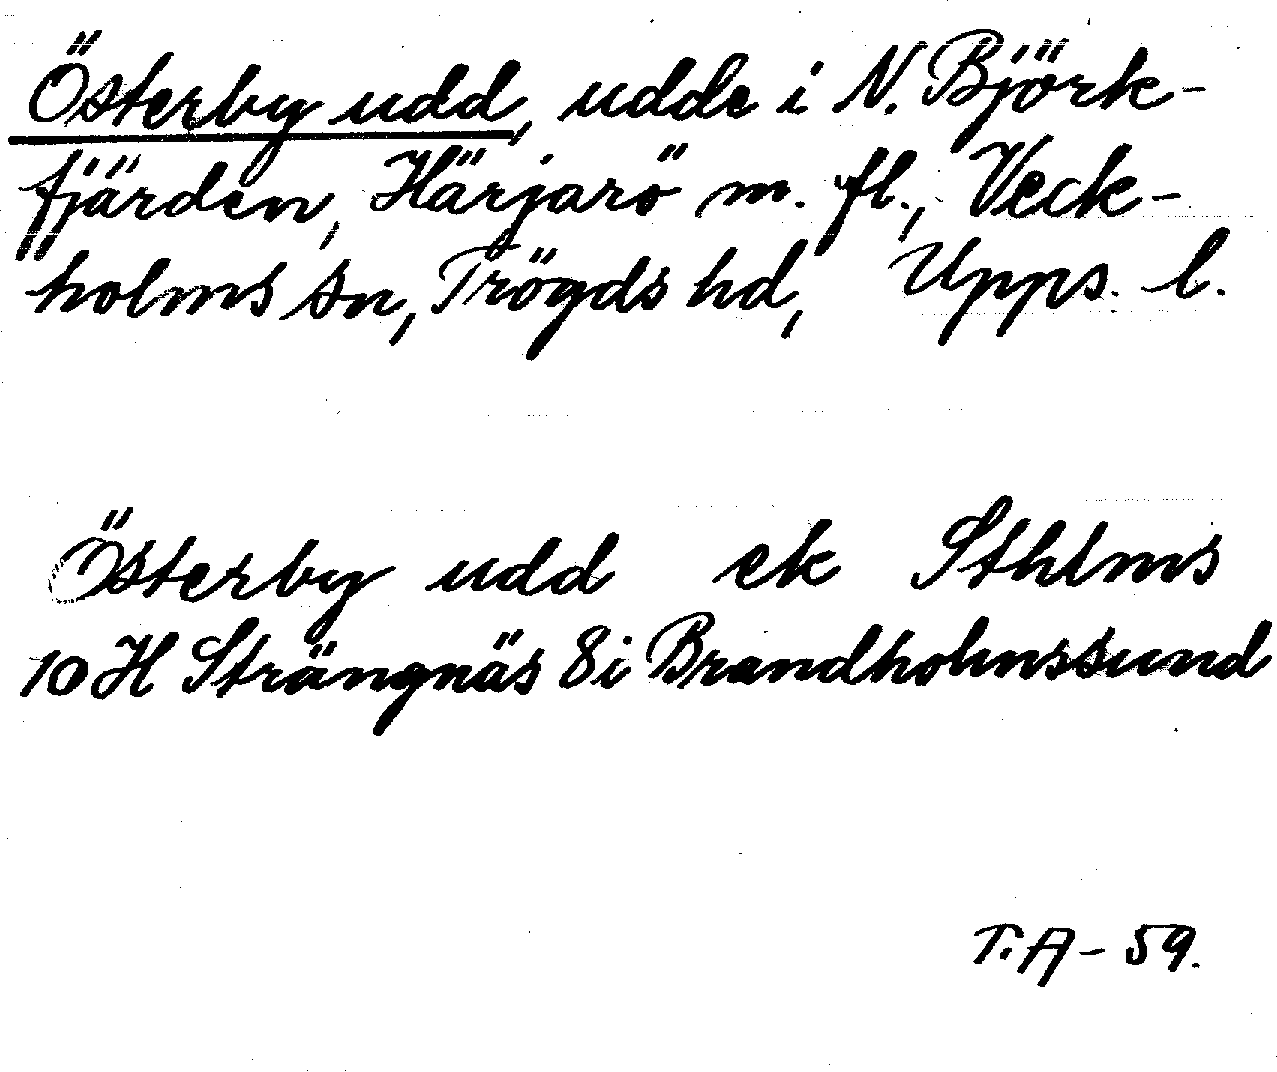 Österby udd, udde i N. Björk-
fjärden, Härjarö m. fl., Veck-
holms sn, Trögds hd, Upps. l.
Österby udd ek Sthlms
10 H Strängnäs 8 i Brandholmssund
T.A - 59.